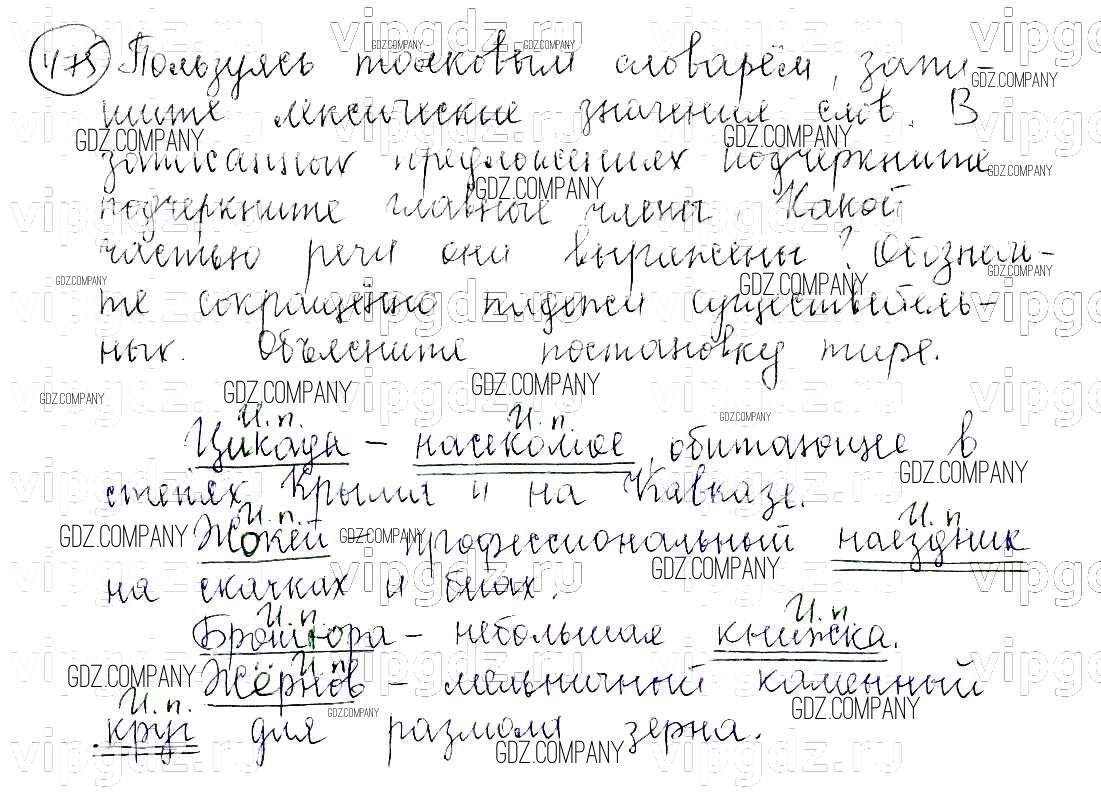 475 Пользуясь толковым словарём, запи-
шите лексические значения слов. В
записанных предложениях подчеркните
подчеркните главные члены. Какой
частью речи они выражены? Обозначь-
те сокращённо падежи существитель-
ных. Объясните постановку тире.
И.п. И.п.
Цикада – насекомое, обитающее в
степях Крыма и на Кавказе.
И.п. И.п.
Жокей – профессиональный наездник
на скачках и бегах.
И.п. И.п.
Брошюра – небольшая книжка.
И.п.
Жёрнов – мельничный каменный
И.п.
круг для размола зерна.
vipgdz.ru
GDZ.COMPANY